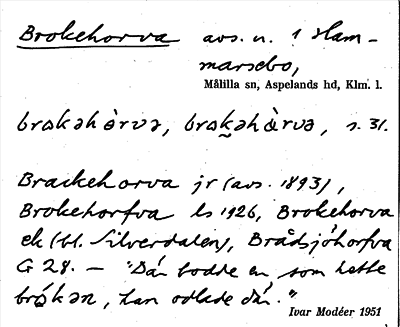 Brokehorva avs. n. 1 Ham-
marsebo,
Målilla sn, Aspelands hd, Klm. l.
brokəhòrvə, brokəhàrvə, s. 31.
Brackehorva jr (avs. 1893),
Brokehorfva ls 1926, Brokehorva
ek (bl. Silverdalen), Brådsjöhorfva
G 28. — "Där bodde en, som hette
brókən, han odlade där."
Ivar Modéer 1951